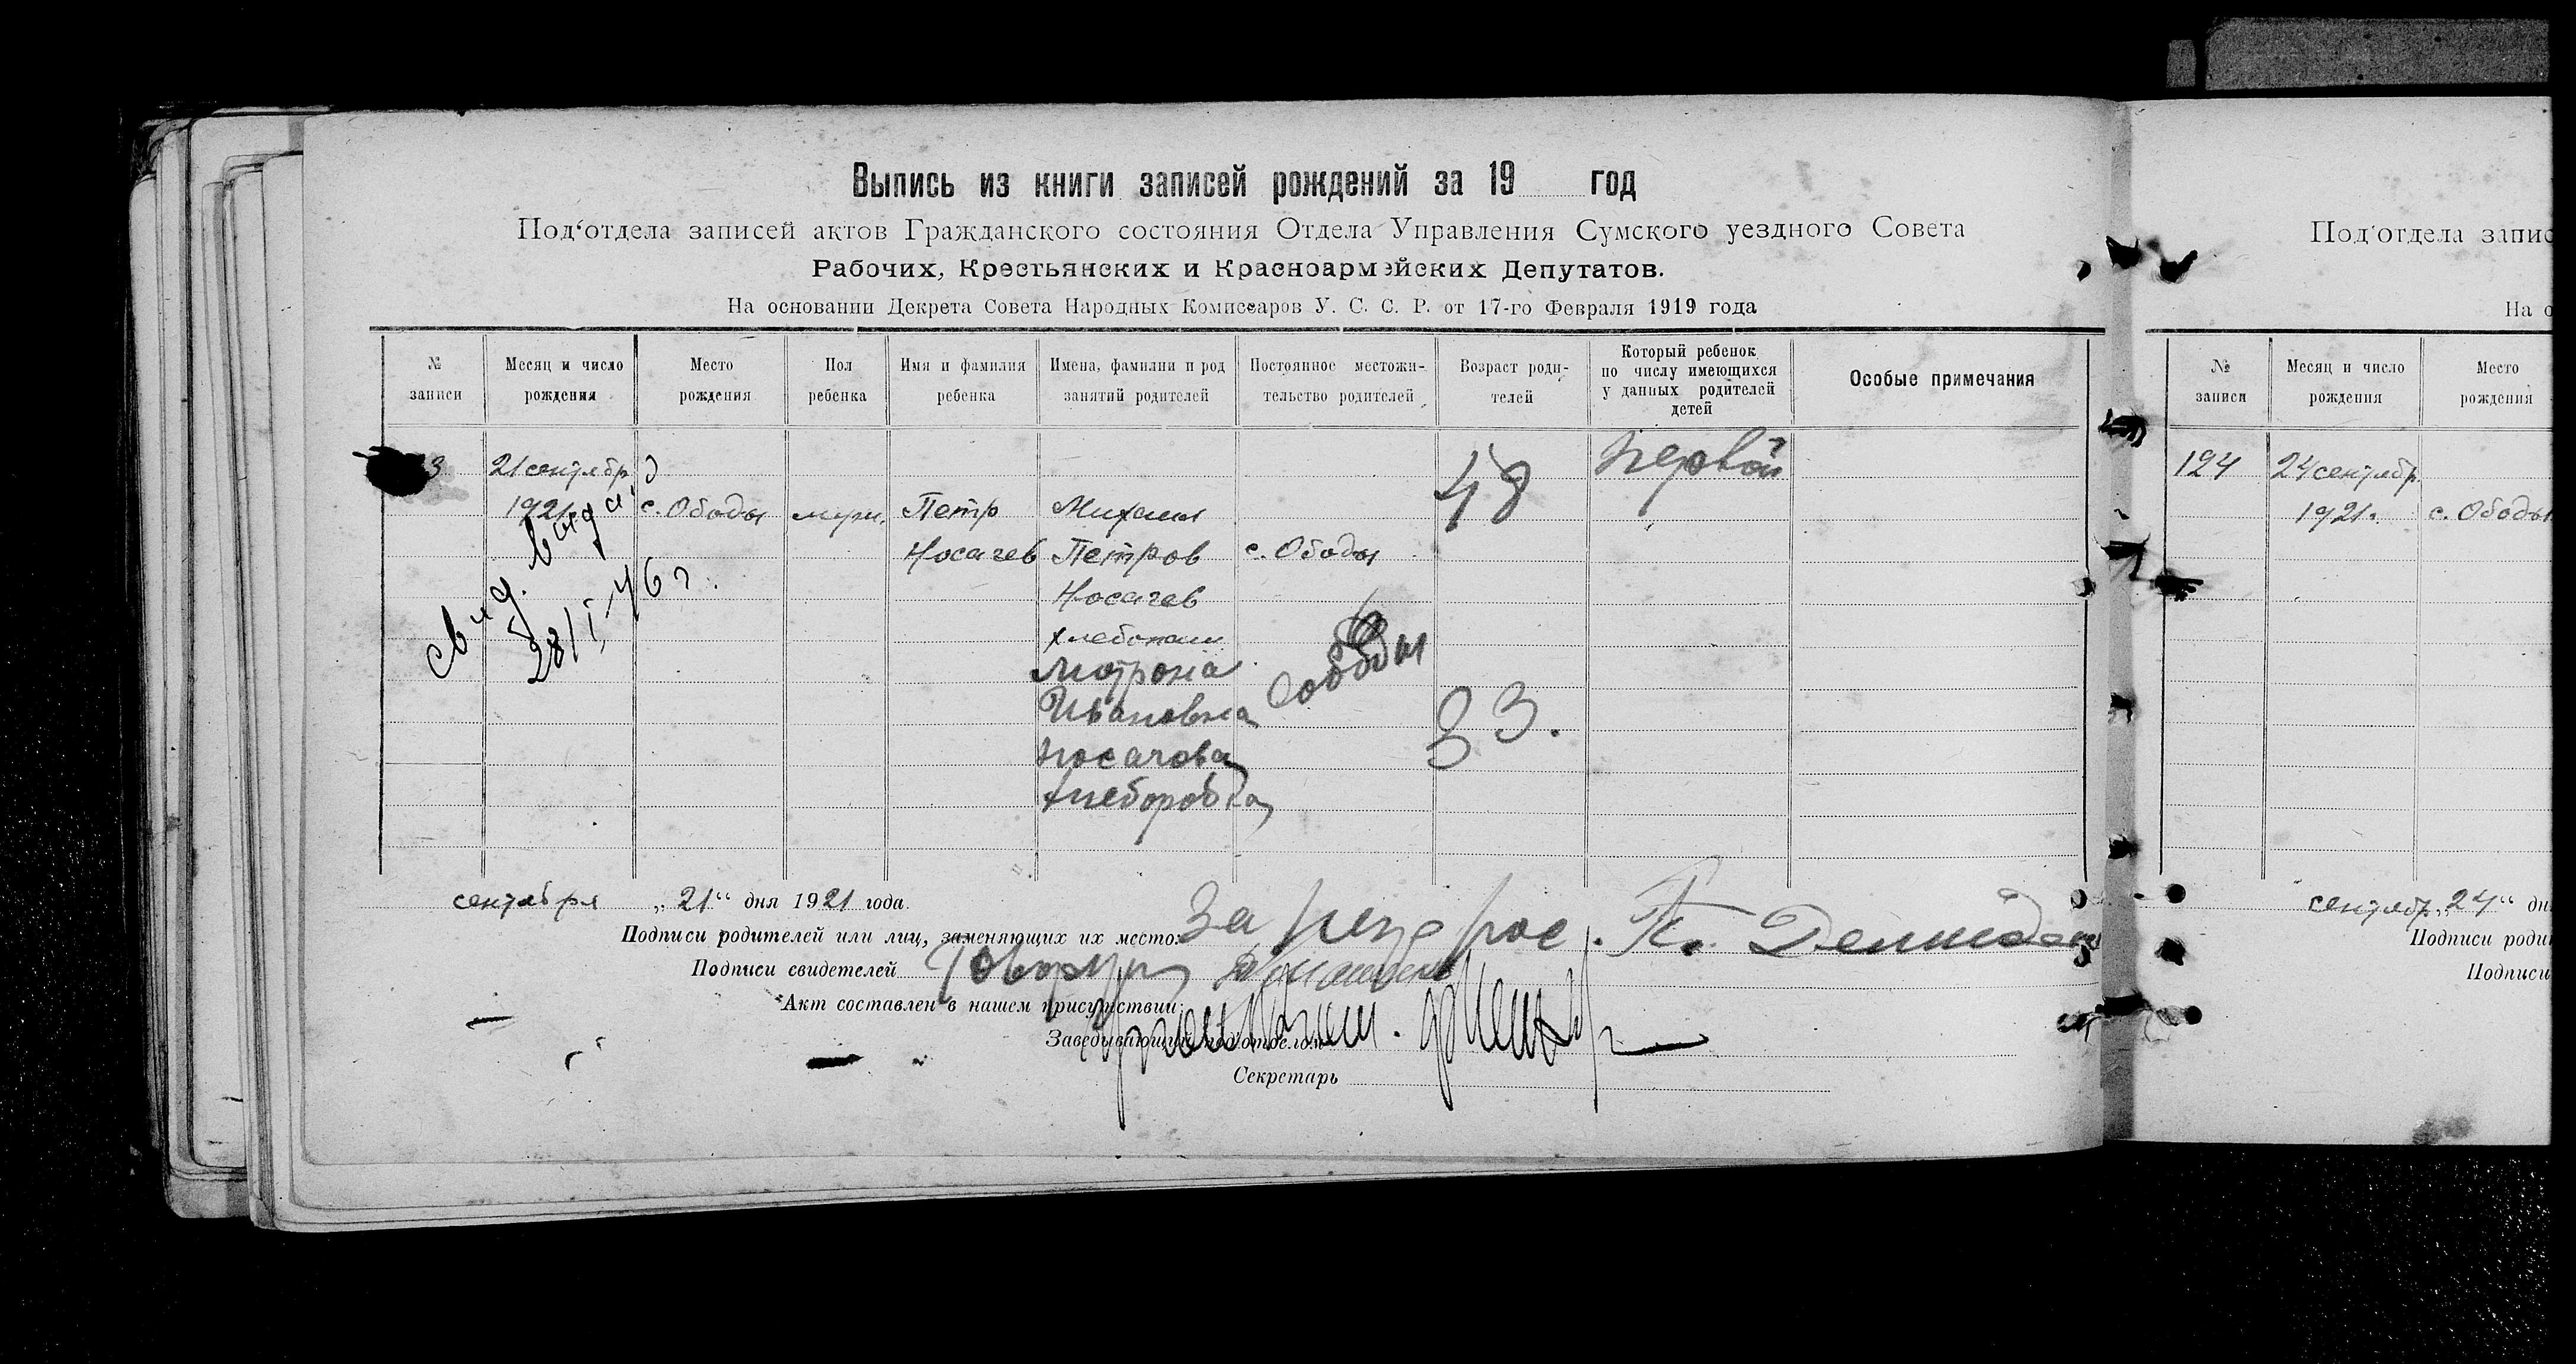 Выпись из книги записей рождений за 19 год
Под‘отдела записей актов Гражданского состояния Отдела Управления Сумского уездного Совета
Рабочих, Крестьянских и Красноармейских Депутатов.
На основании Декрета Совета Народных Комиссаров У. С. С. Р. от 17-го Февраля 1919 года
№ записи
Месяц и число рождения
Место рождения
Пол ребенка
Имя и фамилия ребенка
Имена, фамилии и род занятий родителей
Постоянное местожительство родителей
Возраст родителей
Который ребенок по числу имеющихся у данных родителей детей
Особые примечания
3
21 сентябр
1921
с. Ободы
муж.
Петр
Носачев
Михаил
Петров
Носачев
хлебопаш
Мотрона
Ивановна
Носачова
с. Ободы
с Ободы
48
33.
первый
свид. выда
28/I-46 г.
сентября „21“ дня 1921 года.
Подписи родителей или лиц, заменяющих их место:
Подписи свидетелей
Акт составлен в нашем присутствии:
Заведывающий под‘отделом
Секретарь
Под‘отдела запис
На о
№ записи
Месяц и число рождения
Место рождения
124
24 сентябр
1921.
с. Ободы
сентябр „24“ дн
Подписи роди
Подписи